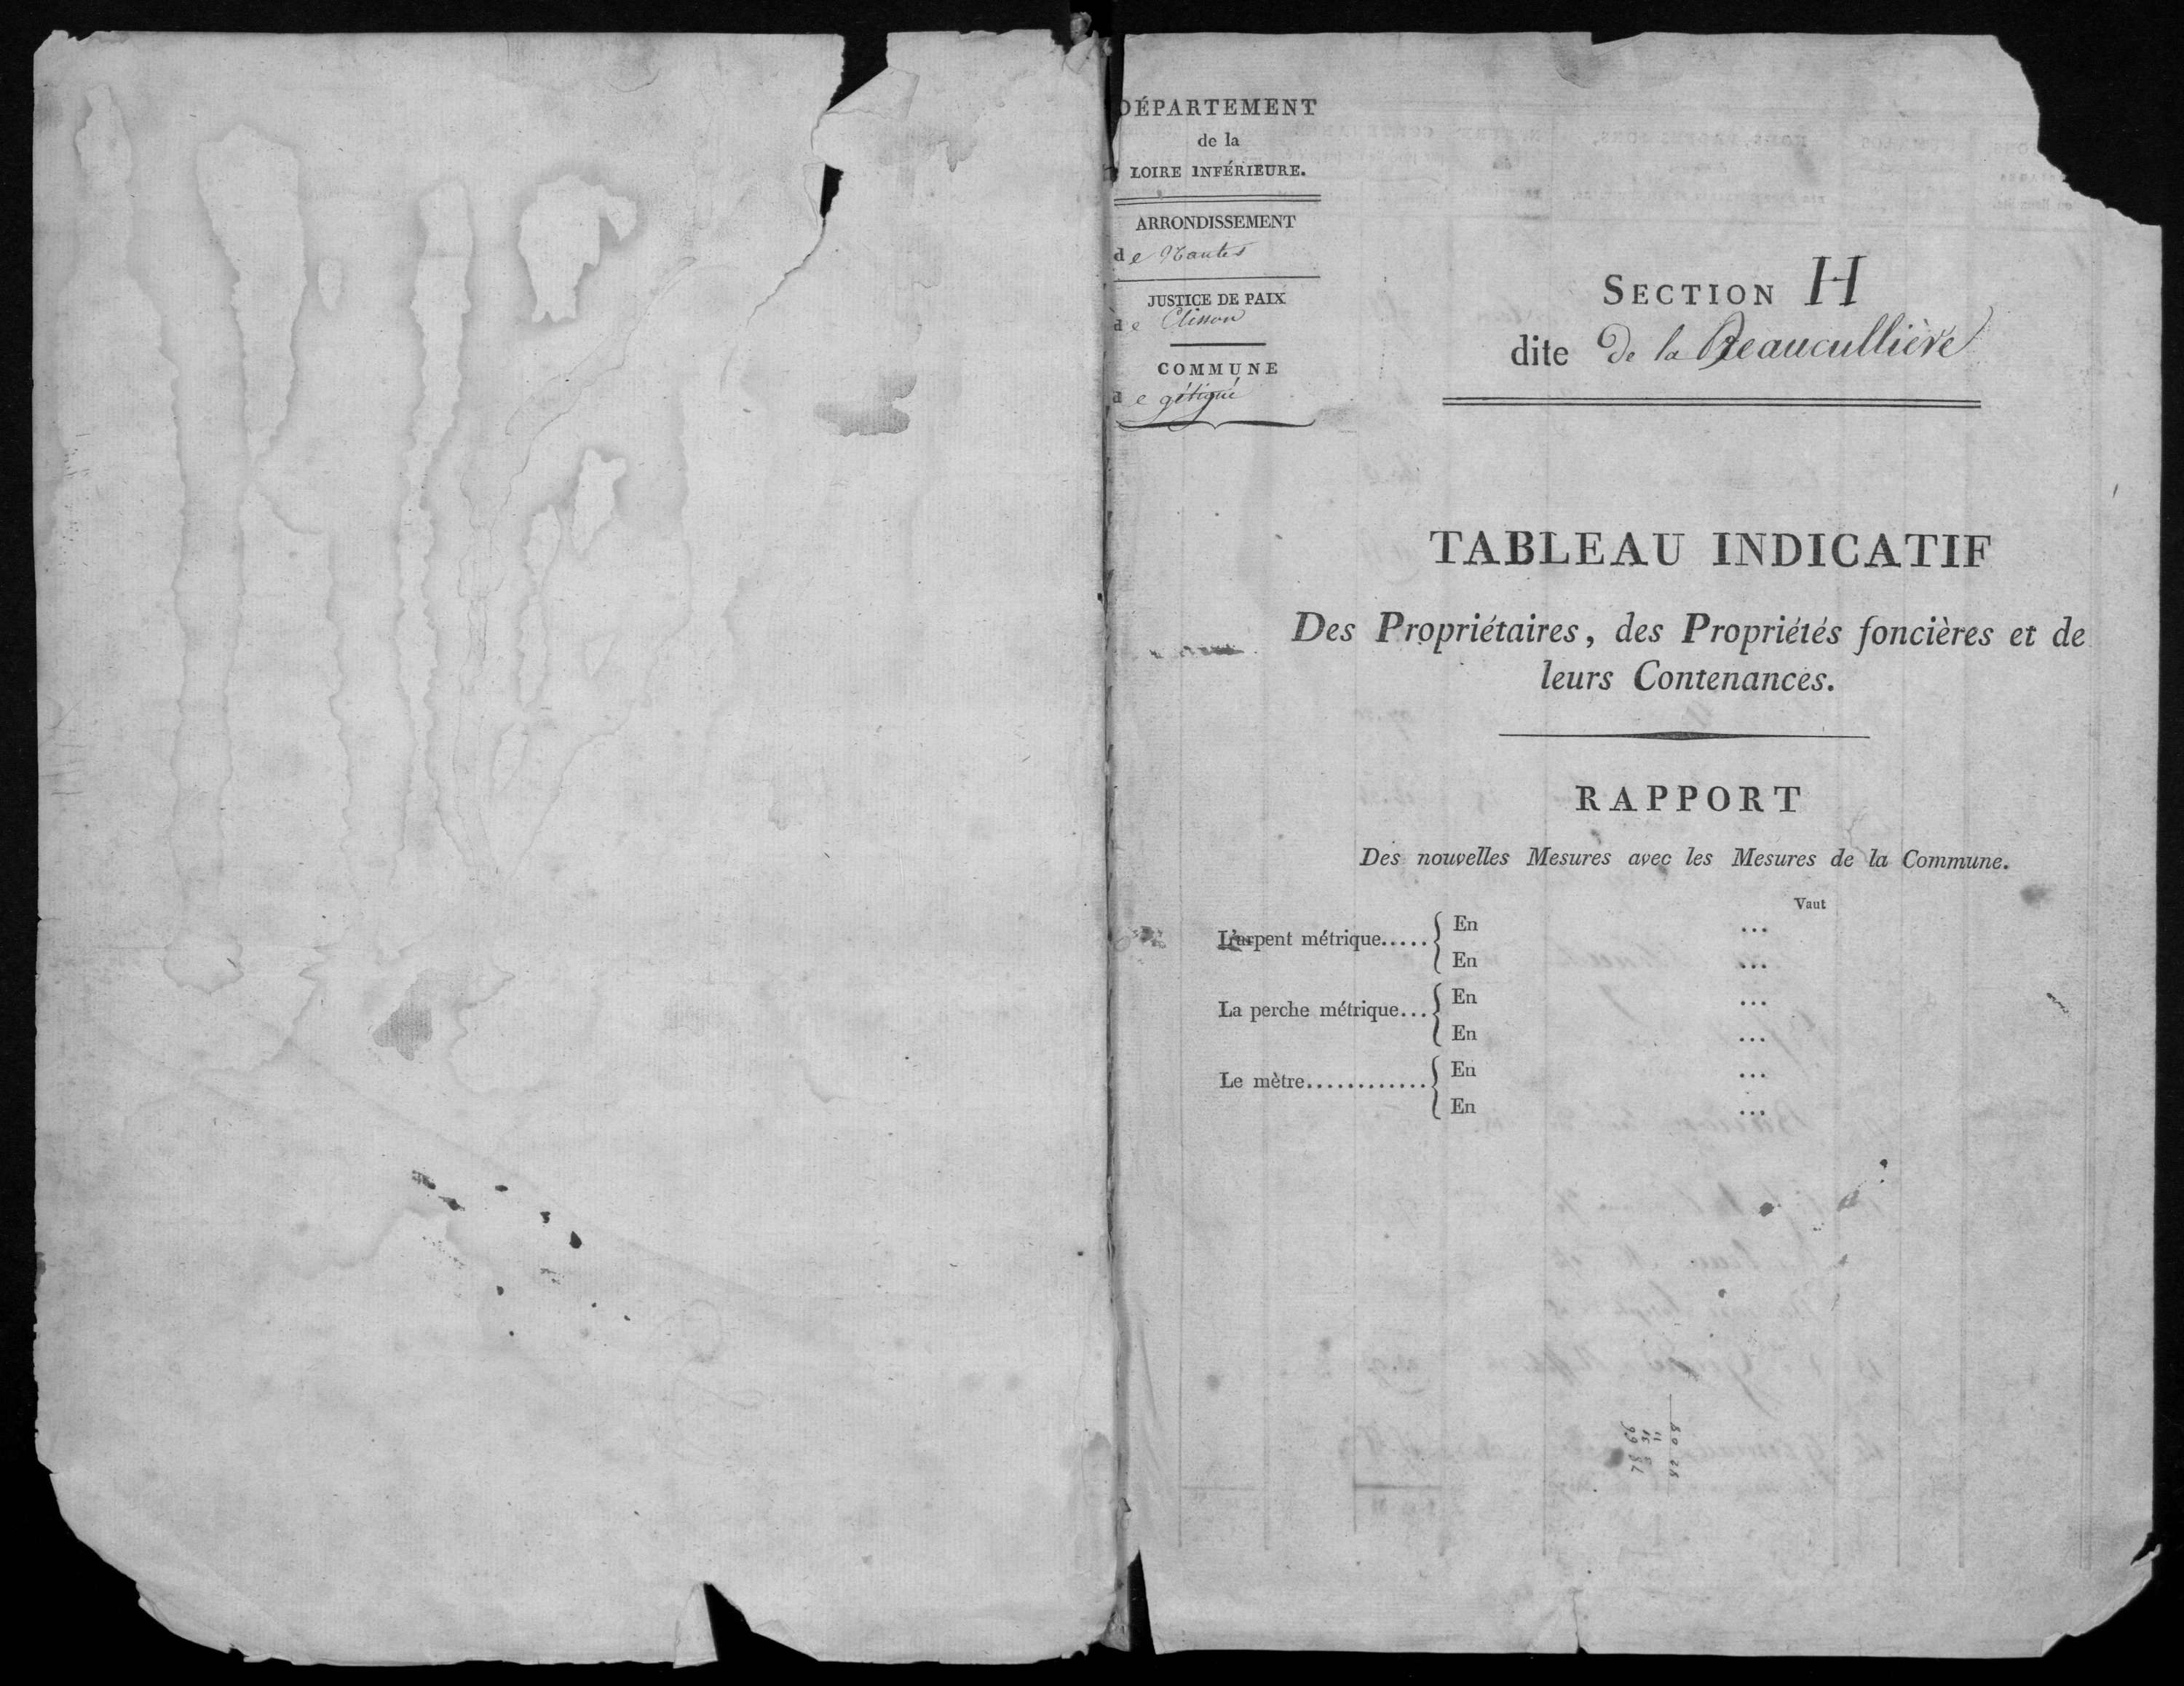 DÉPARTEMENT
de la
LOIRE INFÉRIEURE.
ARRONDISSEMENT
de Nantes
JUSTICE DE PAIX
de Clisson
COMMUNE
de gétigné
SECTION H
dite De la Beaucullière
TABLEAU INDICATIF
Des Propriétaires, des Propriétés foncières et de
leurs Contenances.
RAPPORT
Des nouvelles Mesures avec les Mesures de la Commune.
Vaut
L'arpent métrique..... { En ...
En ...
La perche métrique... { En ...
En ...
Le mètre............ { En ...
En ...